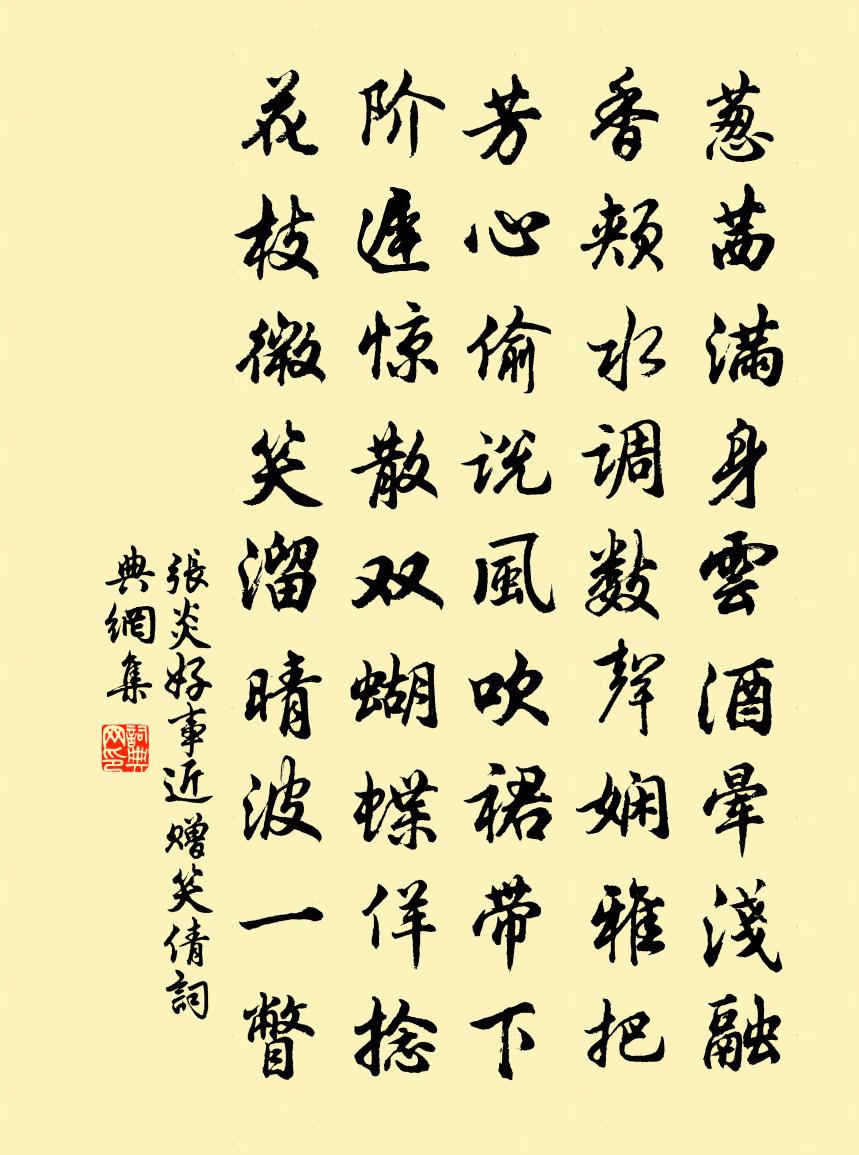 葱茜满身雲酒暈淺融
香頰水调数聲娴雅把
芳心偷说風吹裙带下
阶遲惊散双蝴蝶佯捻
花枝微笑溜晴波一瞥
張炎好事近赠笑倩詞
典網集
詞典网印